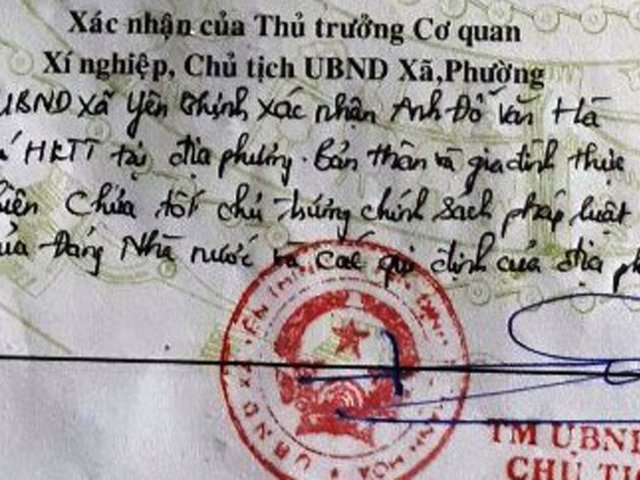 Xác nhận của Thủ trưởng Cơ quan
Xí nghiệp, Chủ tịch UBND Xã,Phường
UBND xã Yên Thịnh xác nhận Anh Đỗ Văn Hà
HKTT tại địa phương. Bản thân và gia đình thực
Chưa tốt chủ trương chính sách pháp luật
của Đảng Nhà nước và các qui định của địa ph
UBND XÃ YÊN THỊNH
TM UBND
CHỦ TỊ